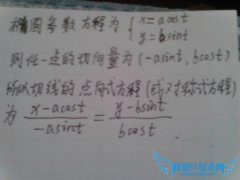 椭圆参数方程为 { x=acost
y=bsint
则任一点的切向量为 (-asint, bcost)
所以切线的点向式方程(或对称式方程)
为 x-acost / -asint = y-bsint / bcost